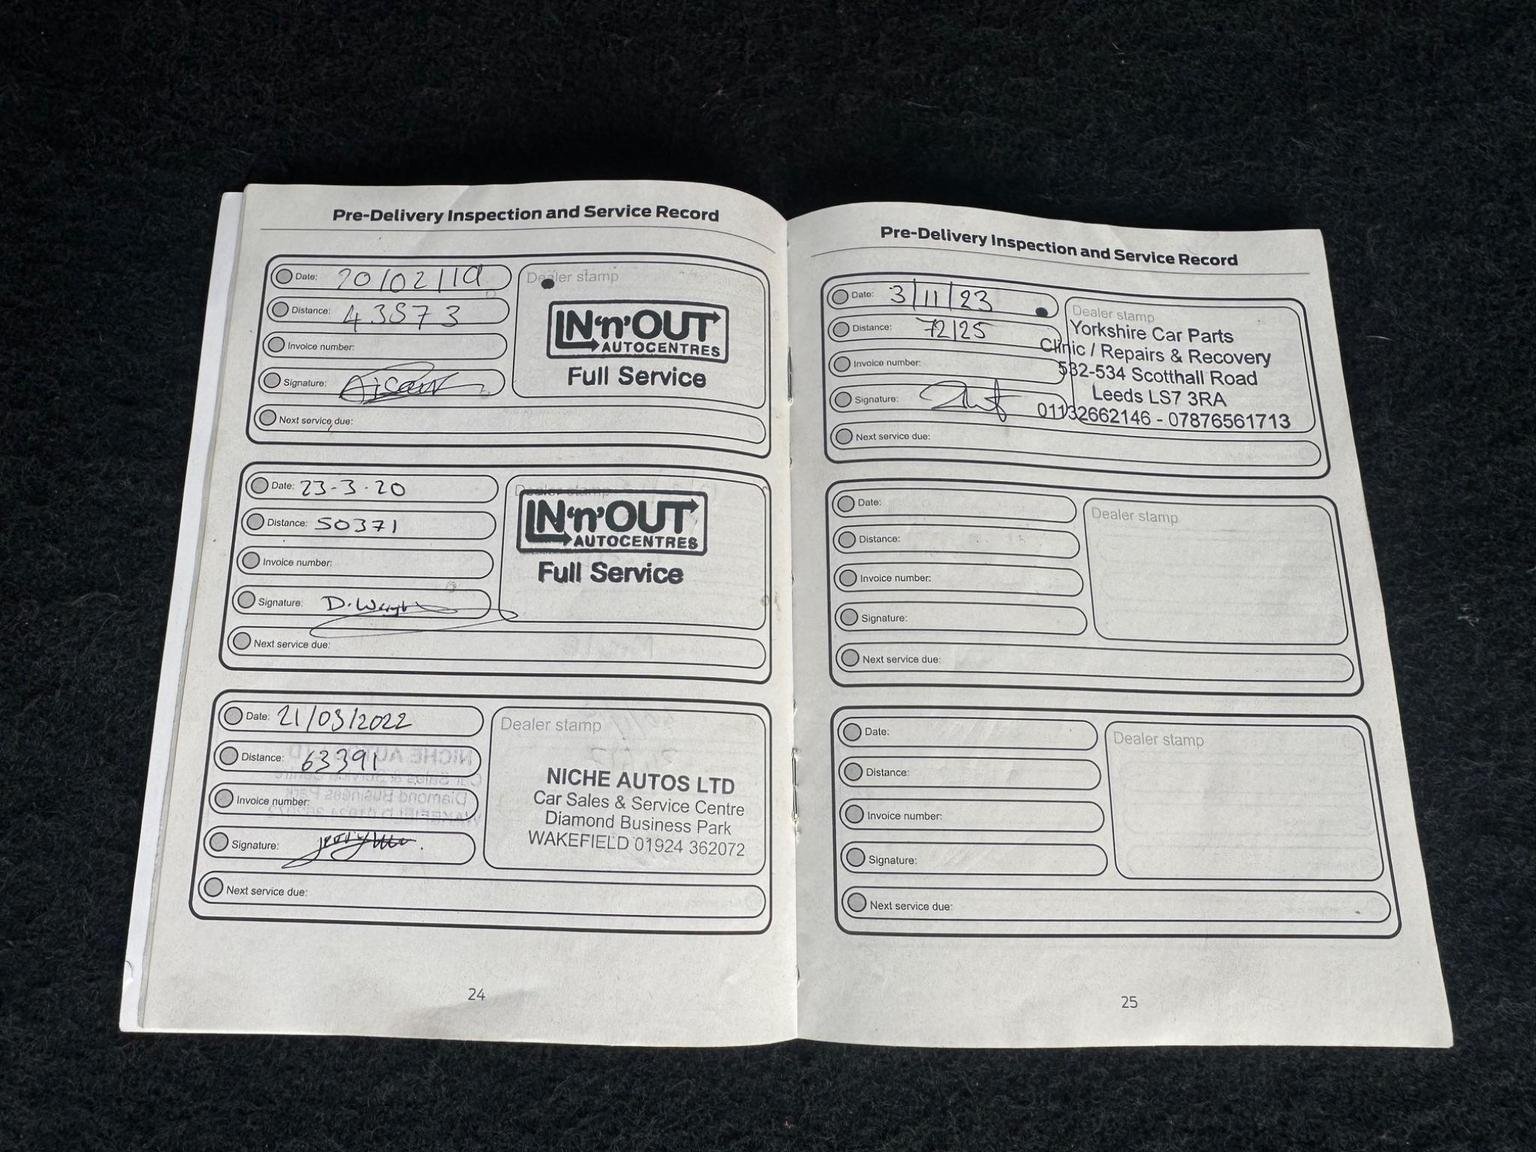 Pre-Delivery Inspection and Service Record
Date: 20/02/19
Distance: 43573
Invoice number:
Signature:
Next service due:
Dealer stamp
IN'n'OUT
AUTOCENTRES
Full Service
Date: 23-3-20
Distance: 50371
Invoice number:
Signature:
Next service due:
Dealer stamp
IN'n'OUT
AUTOCENTRES
Full Service
Date: 21/03/2022
Distance: 63391
Invoice number:
Signature:
Next service due:
Dealer stamp
NICHE AUTOS LTD
Car Sales & Service Centre
Diamond Business Park
WAKEFIELD 01924 362072
24
Pre-Delivery Inspection and Service Record
Date: 3/11/23
Distance: 72125
Invoice number:
Signature:
Next service due:
Dealer stamp
Yorkshire Car Parts
Clinic / Repairs & Recovery
532-534 Scotthall Road
Leeds LS7 3RA
01132662146 - 07876561713
Date:
Distance:
Invoice number:
Signature:
Next service due:
Dealer stamp
Date:
Distance:
Invoice number:
Signature:
Next service due:
Dealer stamp
25